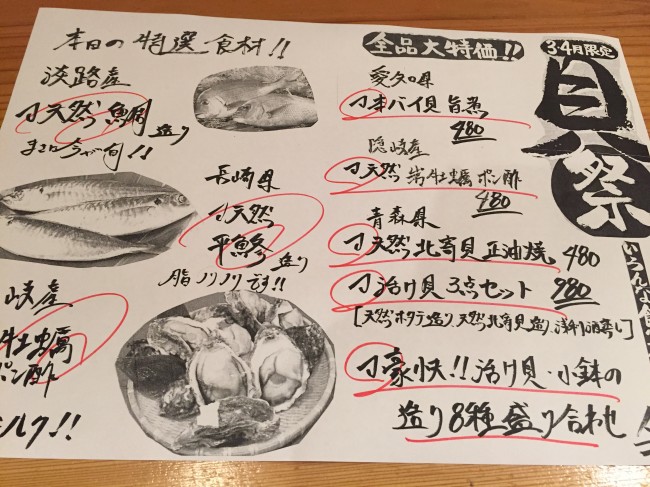 3·4月限定
貝祭
全品大特価!!
愛知県
本バイ貝 旨煮
480
隠岐産
天然 岩牡蠣 ポン酢
480
青森県
天然 北寄貝 正油焼 480
活け貝 3点セット 980
[天然ホタテ造り、天然北寄貝造り、浅利酒蒸し]
豪快!! 活け貝・小鉢の
造り8種盛り合わせ
本日の特選食材!!
淡路産
天然 鯛 造り
まさに今が旬!!
長崎県
天然
平鯵 造り
脂ノリノリです!!
岐産
牡蠣
ポン酢
ミルク!!